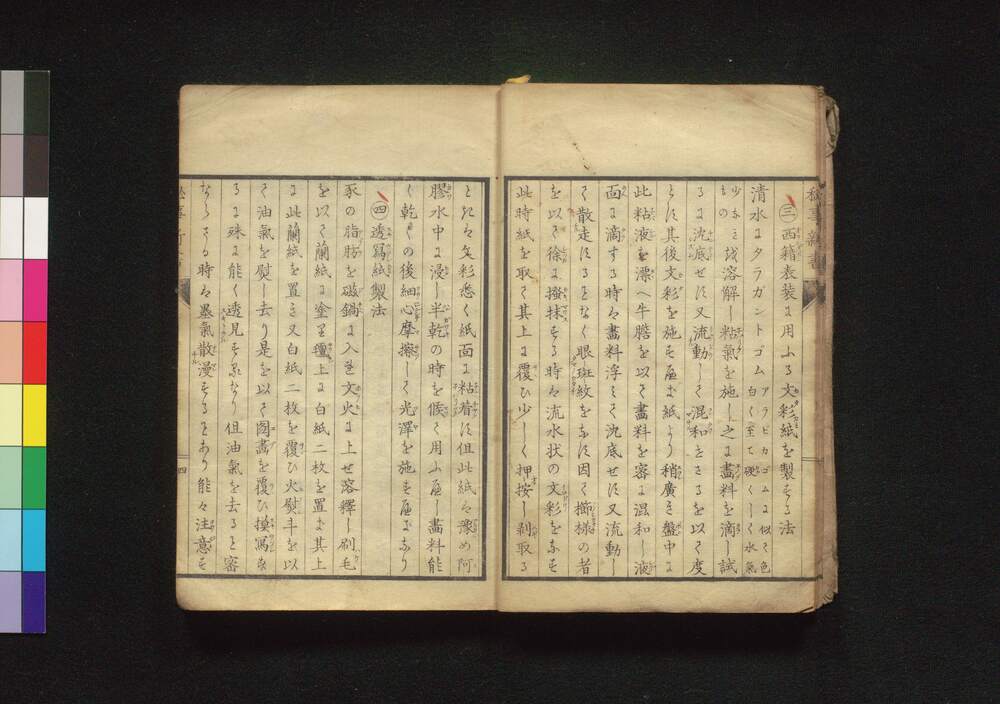 ㊂西籍表装ニ用ふる文彩紙を製する法
清水ニタラガントゴム アラビカゴムニ似て色白く至て硬くしく水氣
少なきもの ミヨ以溶解し粘氣を施し之ニ畫料を滴し試
るニ沈底せす又流動して混和せさるを以て度
とす其後文彩を施すべき紙より稍廣き盤中ニ
此粘液を漂へ牛膽を以て畫料を審ニ温和し液
面ニ滴する時ハ畫料浮ミて沈底せす又流動し
て散走せることなく眼斑紋をなす因て櫛様の者
を以て徐ニ搔抹する時ハ流水状の文彩をなす
此時紙を取て其上ニ覆ひ少しく押按し剥取る
ときハ文彩悉く紙面ニ粘着す但此紙ハ豫め阿
膠水中ニ浸し半乾の時を候て用ふべし畫料能
く乾くの後細心摩擦して光澤を施すべきなり
㊃透寫紙製法
豕の脂肪を磁鍋ニ入れ文火ニ上せ溶釋し刷毛
を以て蘭紙ニ塗り壇上ニ白紙二枚を置き其上
ニ此蘭紙を置き又白紙二枚を覆ひ火熨斗を以
て油氣を熨し去り是を以て圖畫を覆ひ摸寫す
るニ殊ニ能く透見するなり但油氣を去ること審
ならさる時ハ墨氣散漫することあり能々注意す
四